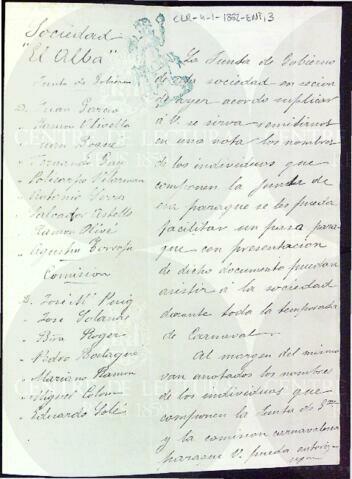 CLR-4-1-1882-ENE, 3
Sociedad
"El Alba"
Junta de Gobierno
D. Juan García
" Ramon Olivella
" Juan
" Fernando
" Policarpo Vilarman
" Antonio
" Salvador
" Ramon Olivé
" Agustin
Comision
D. José Mª Puig
" José Solanas
" Roger
" Pedro
" Mariano Ramon
" Miguel Colom
" Eduardo Solé
La Junta de Gobierno
de la sociedad en secion
de ayer acordó suplicar
á V. se sirva remitirnos
en una nota los nombres
de los individuos que
componen la junta de
esa paraque se les pueda
facilitar un pase para
que con presentacion
de dicho documento puedan
asistir á la sociedad
durante toda la temporada
de Carnaval.
Al margen del mismo
van anotados los nombres
de los individuos que
componen la Junta de
y la comision carnavalesca
paraque V. pueda